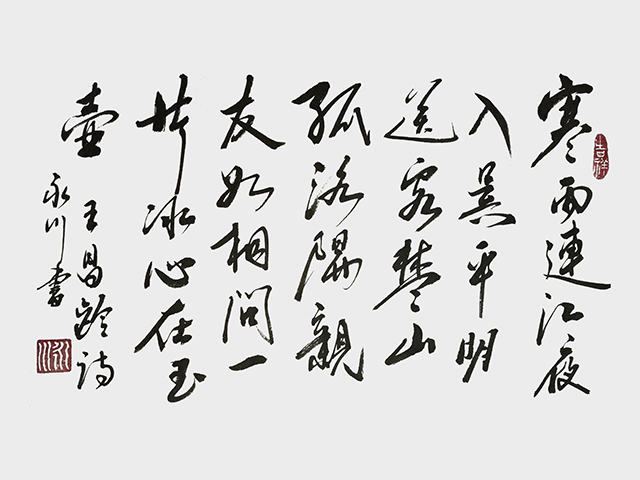 吉祥
寒雨連江夜
入吳平明
送客楚山
孤洛陽親
友如相問一
片冰心在玉
壺
王昌齡詩
永川書